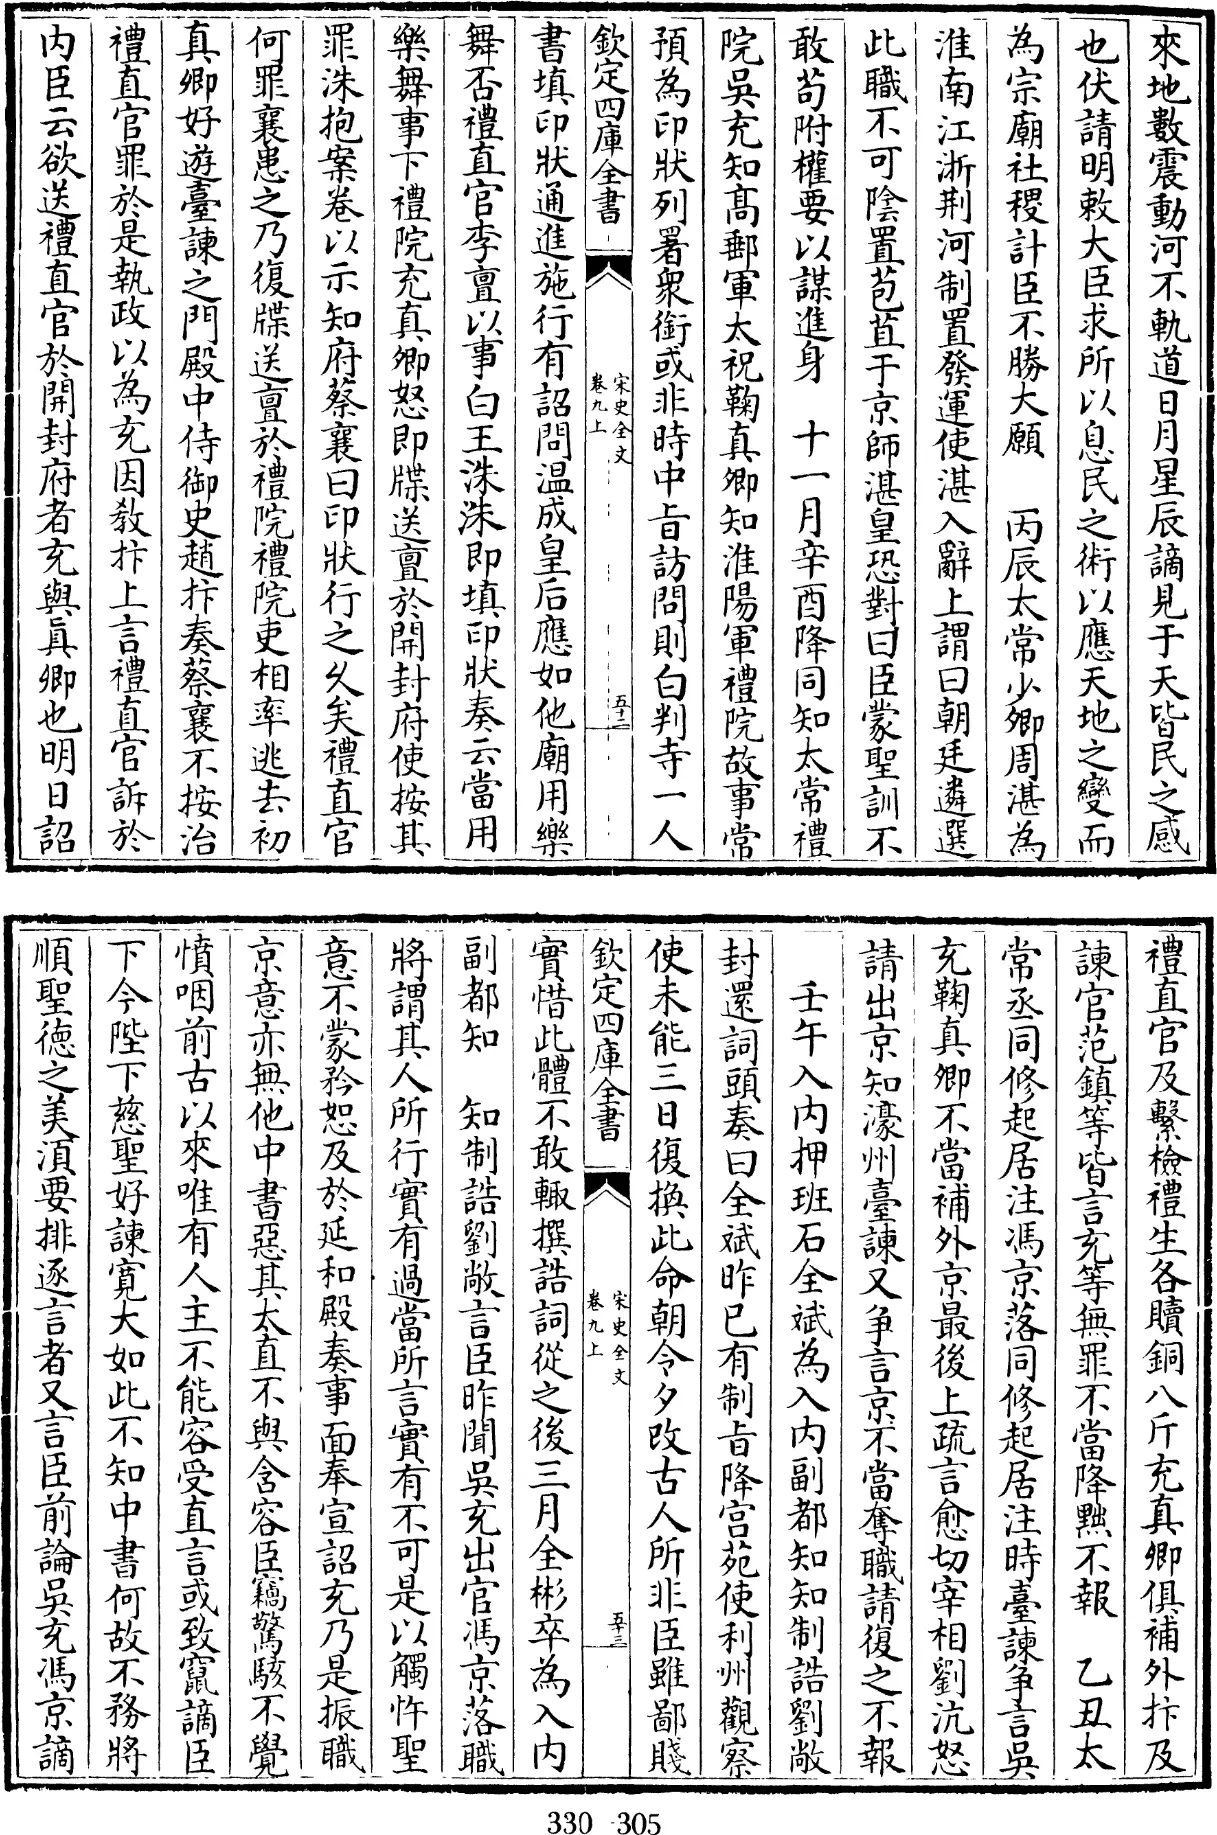 來地數震動河不軌道日月星辰謫見于天皆民之感
也伏請明敕大臣求所以息民之術以應天地之變而
為宗廟社稷計臣不勝大願　丙辰太常少卿周湛為
淮南江浙荆河制置發運使湛入辭上謂曰朝廷遴選
此職不可陰置苞苴于京師湛皇恐對曰臣蒙聖訓不
敢苟附權要以謀進身　十一月辛酉降同知太常禮
院吳充知高郵軍太祝鞠真卿知淮陽軍禮院故事常
預為印狀列署衆銜或非時中旨訪問則白判寺一人
欽定四庫全書
宋史全文
卷九上
五十二
書填印狀通進施行有詔問温成皇后應如他廟用樂
舞否禮直官李亶以事白王洙洙即填印狀奏云當用
樂舞事下禮院充真卿怒即牒送亶於開封府使按其
罪洙抱案卷以示知府蔡襄曰印狀行之久矣禮直官
何罪襄患之乃復牒送亶於禮院禮院吏相率逃去初
真卿好遊臺諫之門殿中侍御史趙抃奏蔡襄不按治
禮直官罪於是執政以為充因教抃上言禮直官訴於
内臣云欲送禮直官於開封府者充與真卿也明日詔
禮直官及繫檢禮生各贖銅八斤充真卿俱補外抃及
諫官范鎮等皆言充等無罪不當降黜不報　乙丑太
常丞同修起居注馮京落同修起居注時臺諫争言吳
充鞠真卿不當補外京最後上疏言愈切宰相劉沆怒
請出京知濠州臺諫又争言京不當奪職請復之不報
壬午入内押班石全斌為入内副都知知制誥劉敞
封還詞頭奏曰全斌昨已有制旨降宫苑使利州觀察
使未能三日復換此命朝令夕改古人所非臣雖鄙賤
欽定四庫全書
宋史全文
卷九上
五十三
實惜此體不敢輙撰誥詞從之後三月全彬卒為入内
副都知　知制誥劉敞言臣昨聞吳充出官馮京落職
將謂其人所行實有過當所言實有不可是以觸忤聖
意不蒙矜恕及於延和殿奏事面奉宣詔充乃是振職
京意亦無他中書惡其太直不與含容臣竊驚駭不覺
憤咽前古以來唯有人主不能容受直言或致竄謫臣
下今陛下慈聖好諫寛大如此不知中書何故不務將
順聖德之美湏要排逐言者又言臣前論吳充馮京謫
330-305